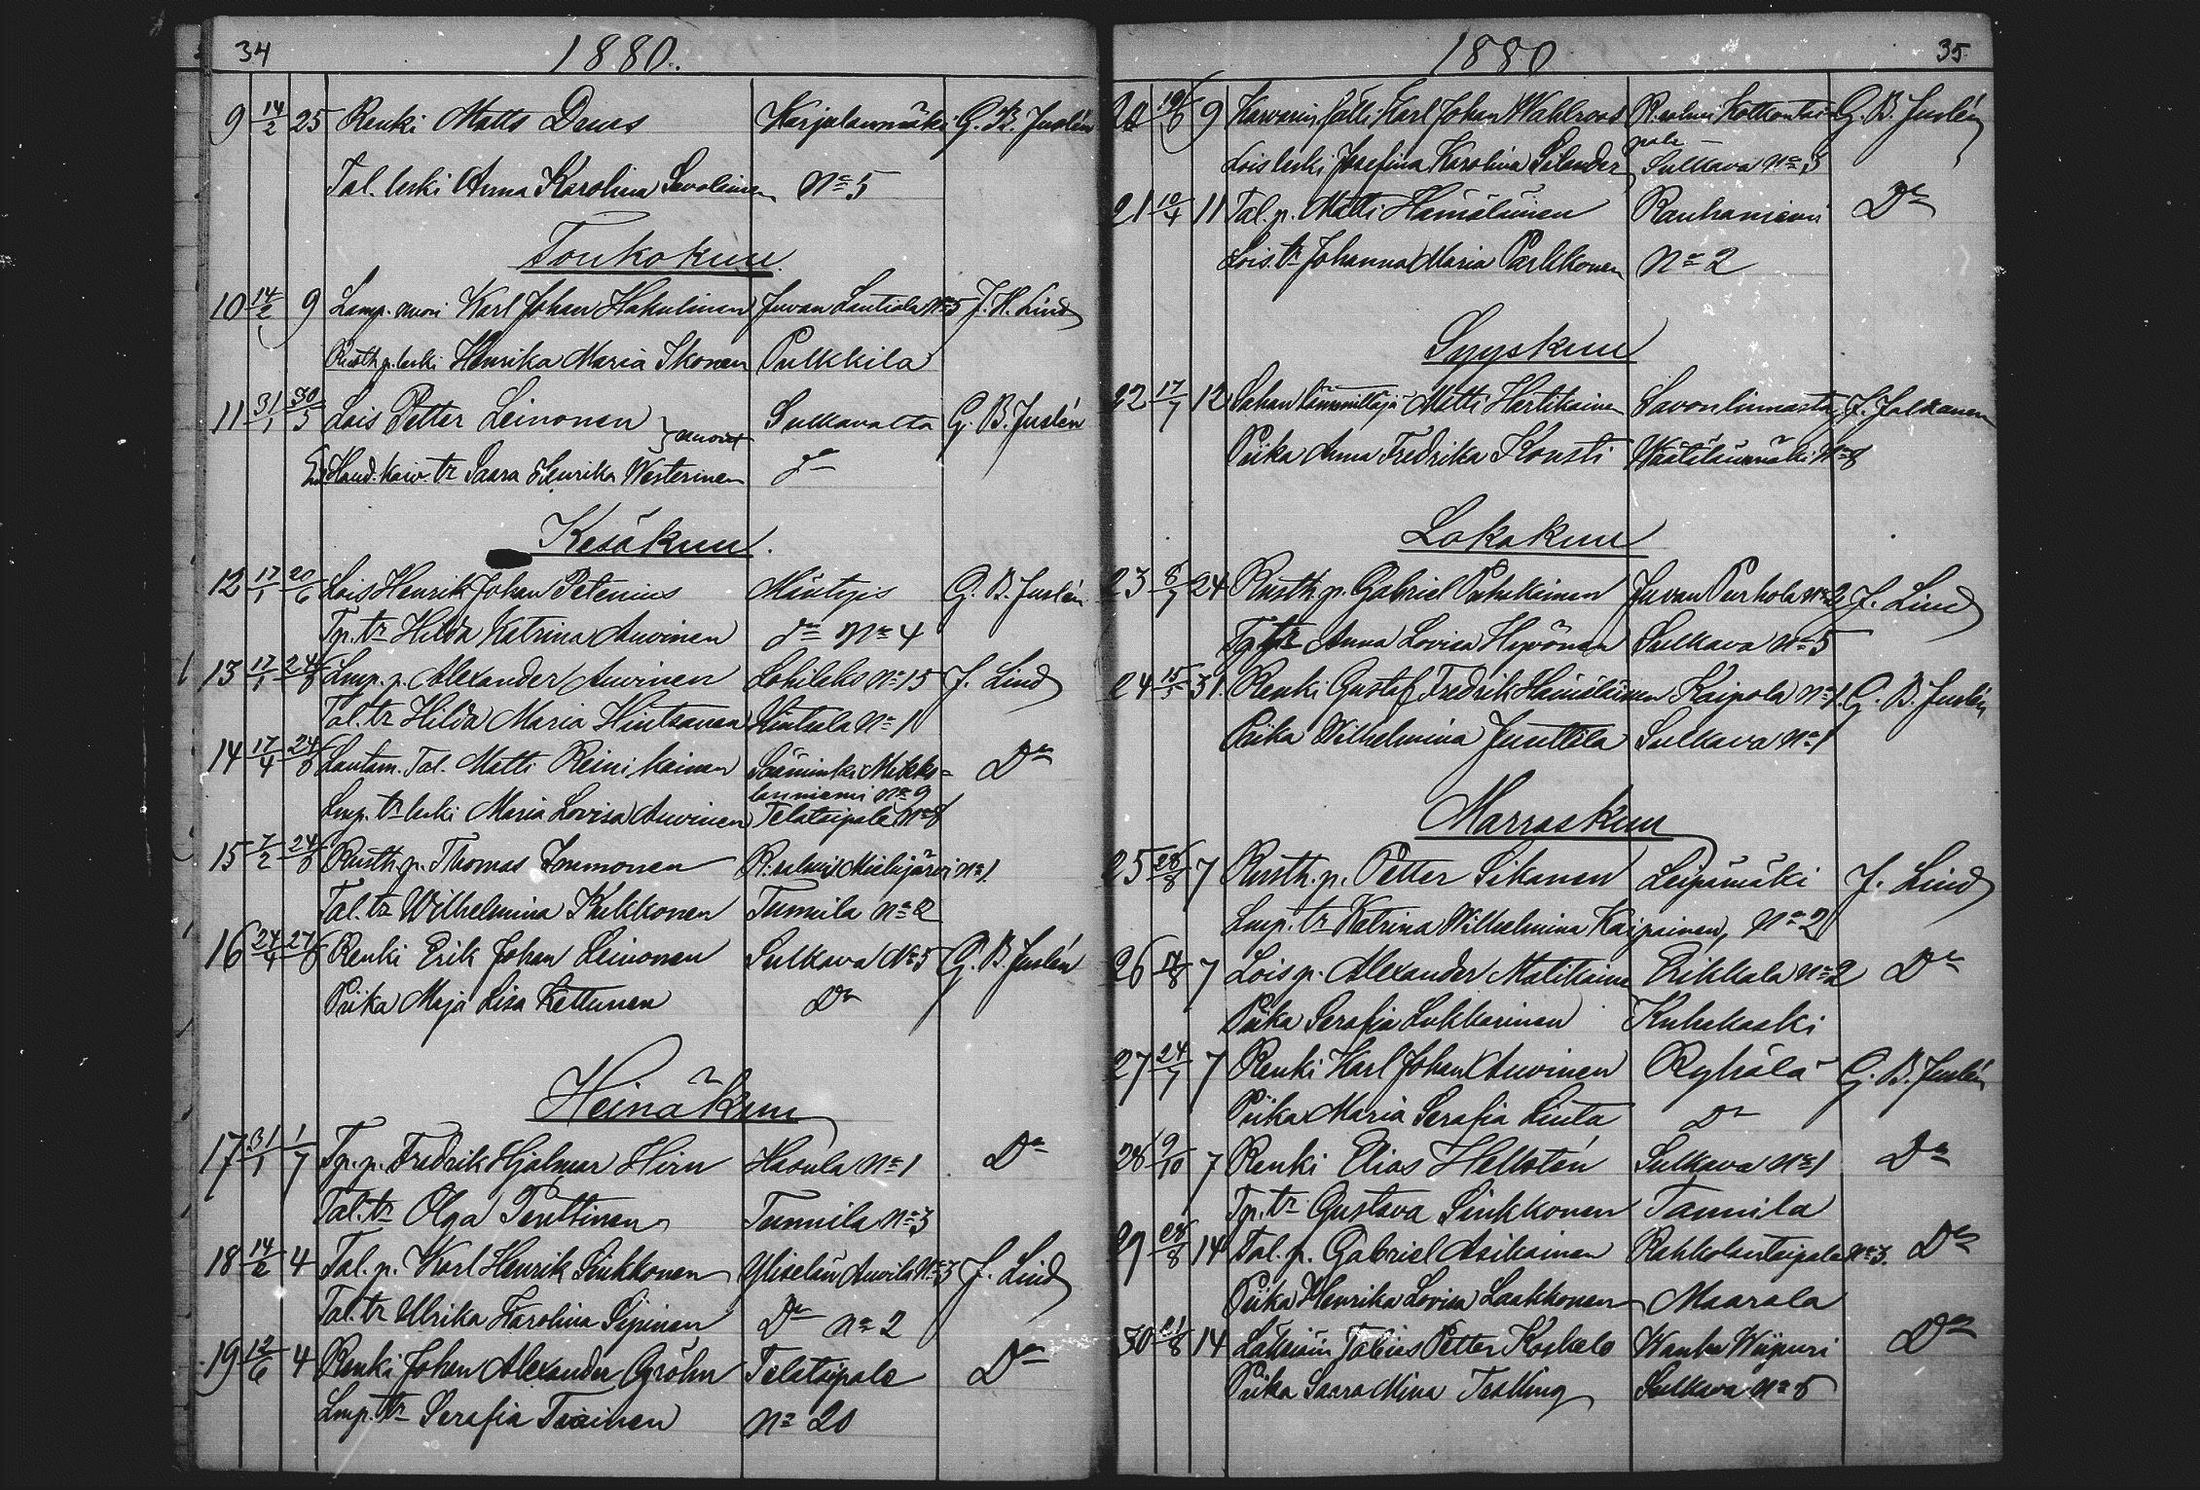 34 1880.
9 14/2 25 Renki Matts Deus Karjalanmäki G. B. Juslén
Tal. leski Anna Karolina Savolainen No 5
Toukokuu.
10 14/2 9 Lamp. vuori Karl Johan Hakulinen Juvan Lautiala No 5 J. H. Lind
Rusth. p. leski Henrika Maria Ikonen Pulkkila
11 31/1 30/5 Lois Petter Leinonen Sulkavalta G. B. Juslén
tr Saara Henrika Westerinen do
Kesäkuu.
12 17/1 20/6 Lois Henrik Johan Petenius Mäntyis G. B. Juslén
Tp. tr Hilda Katrina Auvinen do No 4
13 17/1 24/6 Lmp. p. Alexander Auvinen Lohilaks No 15 J. Lind
Tal. tr Hilda Maria Hintsanen Kintsala No 1
14 17/4 24/6 Lautam. Tal. Matti Reinikainen Sääminki Mikko=
lanniemi No 9 Do
Lmp. tr leski Maria Lovisa Auvinen Telataipale No 8
15 7/2 24/6 Rusth. p. Thomas Immonen R:salmi Mielujärvi No 1.
Tal. tr Wilhelmina Kukkonen Tunnila No 2
16 24/4 27/6 Renki Erik Johan Leinonen Sulkava No 5 G. B. Juslén
Piika Maja Lisa Kettunen Do
Heinäkuu
17 31/1 1/7 Tp. p. Fredrik Hjalmar Hirn Kaoula No 1 Do
Tal. tr Olga Penttinen Tunnila No 3
18 14/2 4 Tal. p. Karl Henrik Sinkkonen Yliselän Auvila No 3 J. Lind
Tal. tr Ulrika Karolina Sipinen Do No 2
19 12/6 4 Renki Johan Alexander Gröhn Telataipale Do
Lmp. tr Serafia Tiainen No 20
1880 35
20 19/6 9 Karvarin sälli Karl Johan Wahlroos R:salmi Kolkontai= G. B. Juslén
pale
Lois leski Josefina Karolina Selander Sulkava No 3
21 10/4 11 Tal. p. Matti Hämäläinen Rauhaniemi Do
Lois. tr Johanna Maria Parkkonen No 2
Syyskuu
22 17/7 12 Sahan Matti Hertikainen Savonlinnasta J. Jalkanen
Piika Anna Fredrika Kousti Wäätälänmäki No 8
Lokakuu
23 8/7 24 Rusth. p. Gabriel Puhakainen Juvan Purhola No 2 J. Lind
Tp. tr Anna Lovisa Hyvönen Sulkava No 5
24 15/5 31. Renki Gustaf Fredrik Hämäläinen Kaipola No 1. G. B. Juslén
Piika Wilhelmina Junttila Sulkava No 1
Marraskuu
25 28/8 7 Rusth. p. Petter Sikanen Leipämäki J. Lind
Lmp. tr Katrina Wilhelmina Kaipainen, No 2
26 7 Lois p. Alexander Matikainen Erikkala No 2 Do
Piika Serafia Lukkarinen Kuhakoski
27 24/7 7 Renki Karl Johan Auvinen Ryhälä G. B. Juslén
Piika Maria Serafia Liuta Do
28 9/10 7 Renki Elias Hellstén Sulkava No 1 Do
Tp. tr Gustava Sinkkonen Tannila
29 28/8 14 Tal. p. Gabriel Asikainen Rahkolantaipale No 3. Do
Piika Henrika Lovisa Laakkonen Maarala
30 14 Tobias Petter Koskelo Wanha Wiipuri Do
Piika Saara Mina Tralling Sulkava No 5